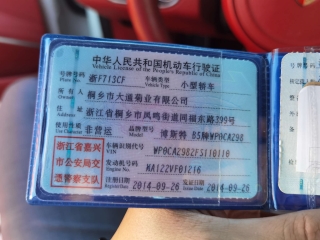 中华人民共和国机动车行驶证
Vehicle License of the People's Republic of China
号牌号码 浙F713CF 车辆类型 小型轿车
Plate No. Vehicle Type
所有人 桐乡市大通菊业有限公司
Owner
住址 浙江省桐乡市凤鸣街道同福东路399号
Address
使用性质 非营运 品牌型号 博斯特 B5牌WP0CA298
Use Character Model
浙江省嘉兴
市公安局交
通警察支队
车辆识别代号 WP0CA2982FS110110
VIN
发动机号码 MA122VF01216
Engine No.
注册日期 2014-09-26 发证日期 2014-09-26
Register Date Issue Date